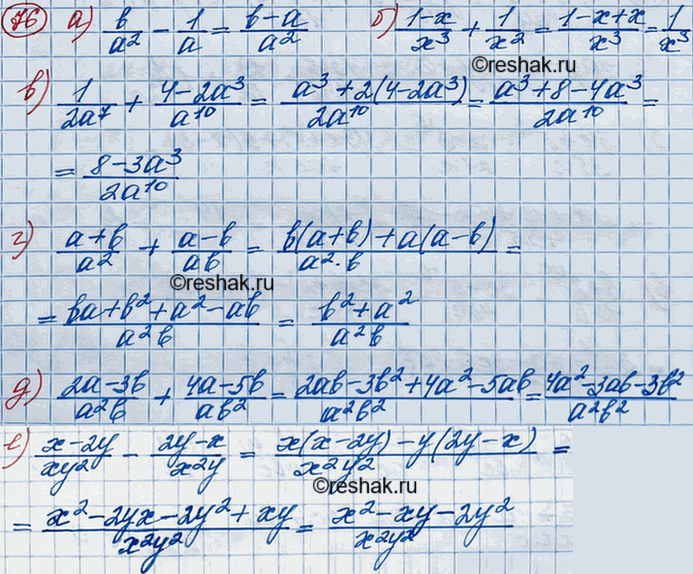 76 а) b/a² - 1/a = b-a/a² б) 1-x/x³ + 1/x² = 1-x+x/x³ = 1/x³
©reshak.ru
в) 1/2a⁷ + 4-2a³/a¹⁰ = a³+2(4-2a³)/2a¹⁰ = a³+8-4a³/2a¹⁰ =
= 8-3a³/2a¹⁰
г) a+b/a² + a-b/ab = b(a+b)+a(a-b)/a²·b =
©reshak.ru
= ba+b²+a²-ab/a²b = b²+a²/a²b
д) 2a-3b/a²b + 4a-5b/ab² = 2ab-3b²+4a²-5ab/a²b² = 4a²-3ab-3b²/a²b²
е) x-2y/xy² - 2y-x/x²y = x(x-2y)-y(2y-x)/x²y² =
©reshak.ru
= x²-2yx-2y²+xy/x²y² = x²-xy-2y²/x²y²